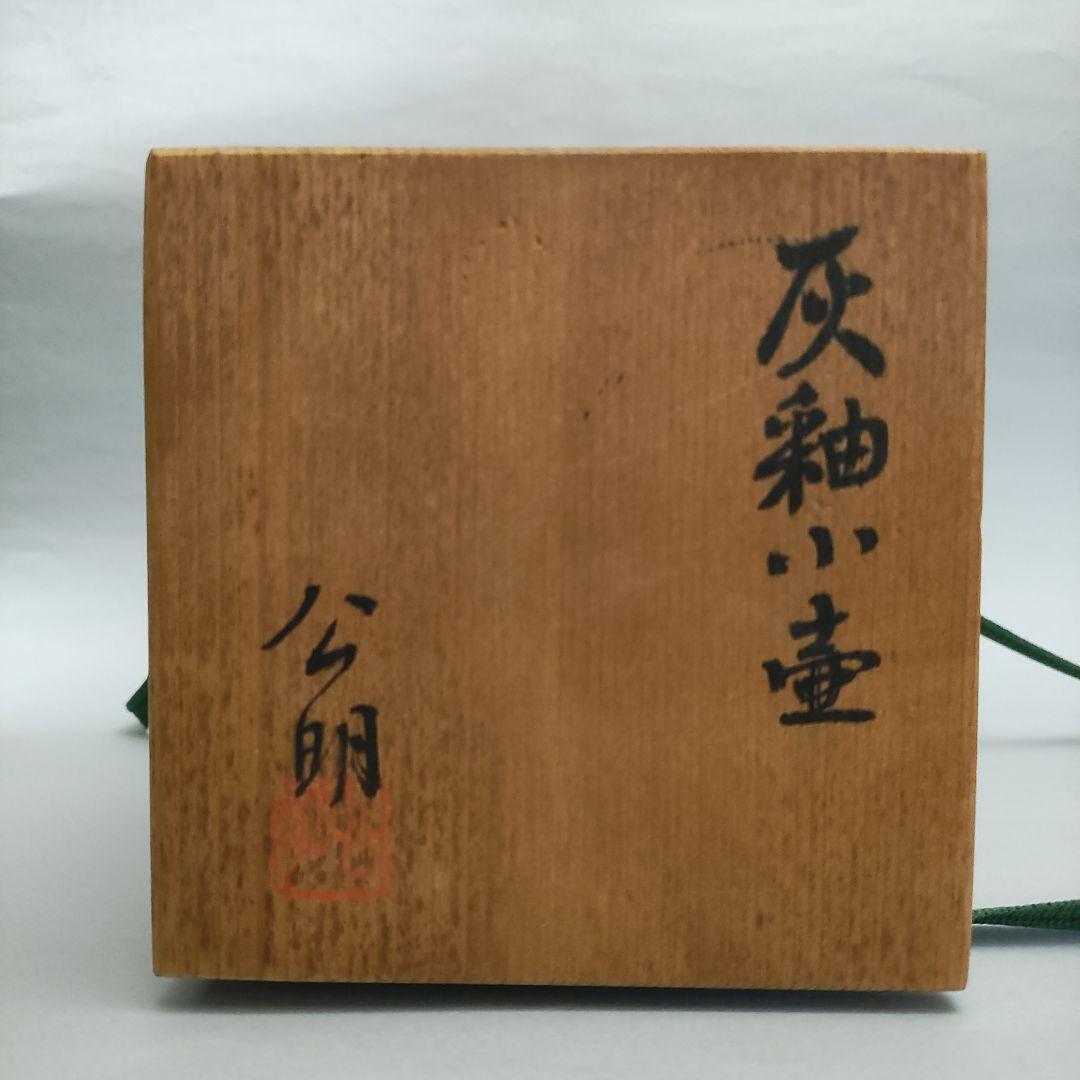 灰釉小壷
公明